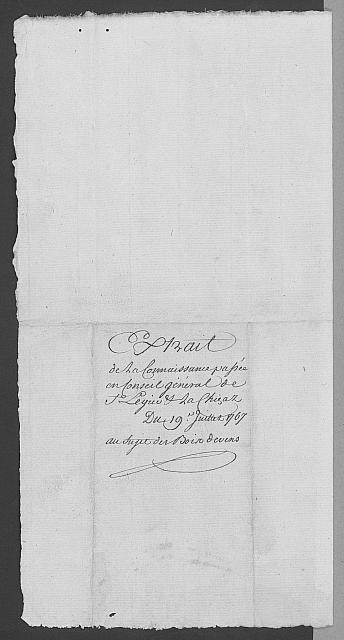 Extrait
de La Connaissance passée
en Conseil général de
St Légier & La Chiésaz
Du 19e Juillet 1767
au Sujet des Bois devens